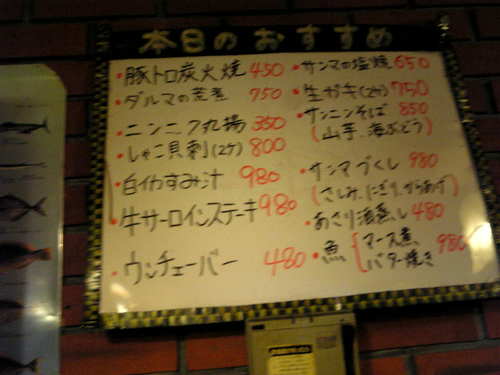 本日のおすすめ
・豚トロ炭火焼 450
・ダルマの荒煮 750
・ニンニク丸揚 350
・しゃこ貝刺(2ケ) 800
・白イカすみ汁 980
・牛サーロインステーキ 980
・ウンチェーバー 480
・サンマの塩焼 650
・生ガキ(2ケ) 750
・サンニンそば 850
(山芋、海ぶどう)
・サンマづくし 980
(さしみ、にぎり、からあげ)
・あさり酒蒸し 480
・魚 マース煮、 980
バター焼き